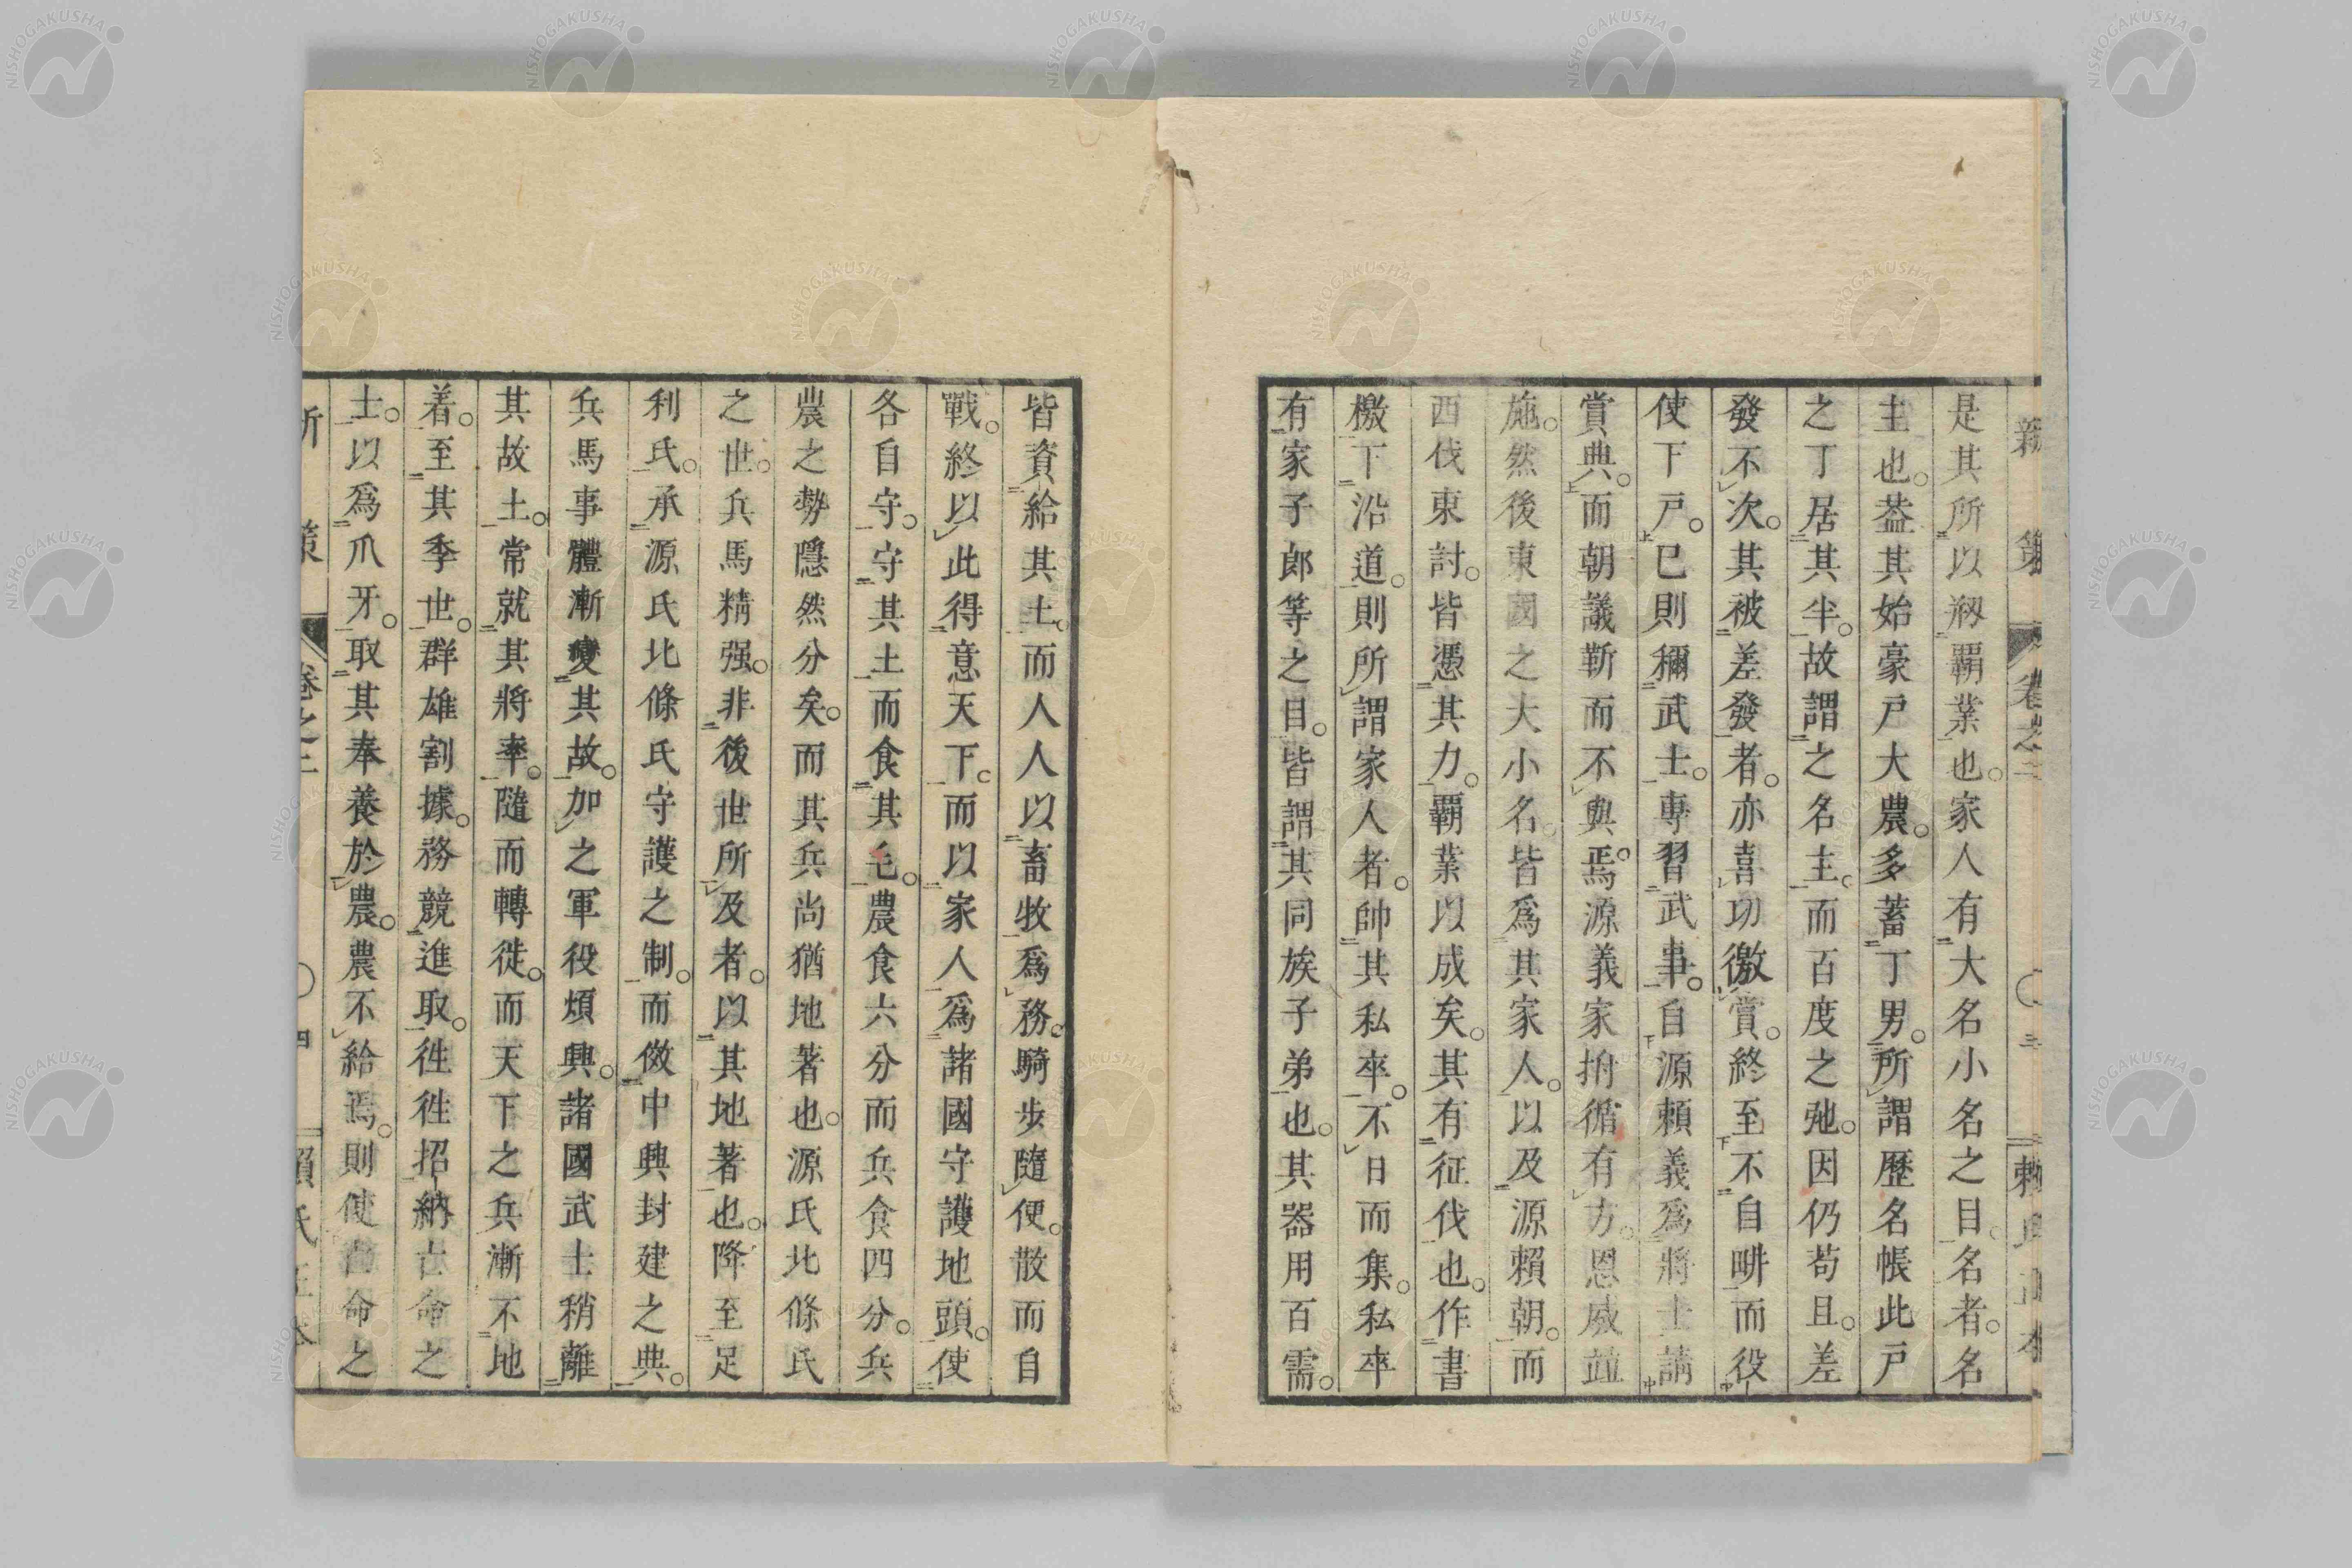 是其所以剏覇業也。家人有大名小名之目。名者。名
主也。葢其始豪戸大農。多蓄丁男。所謂歷名帳此戸
之丁居其半。故謂之名主。而百度之弛。因仍苟且。差
發不次。其被差發者。亦喜功徼賞。終至不自畊而役
使下戸。已則稱武士。專習武事。自源賴義爲將士請
賞典。而朝議靳而不與焉。源義家拊循有方。恩威並
施。然後東國之大小名。皆爲其家人。以及源賴朝。而
西伐東討。皆憑其力。覇業以成矣。其有征伐也。作書
檄下沿道。則所謂家人者。帥其私卒。不日而集。私卒
有家子郎等之目。皆謂其同族子弟也。其器用百需。
皆資給其土。而人人以畜牧爲務。騎步隨便。散而自
戰。終以此得意天下。而以家人爲諸國守護地頭。使
各自守。守其土而食其毛。農食六分而兵食四分。兵
農之勢隱然分矣。而其兵尚猶地著也。源氏北條氏
之世。兵馬精强。非後世所及者。以其地著也。降至足
利氏。承源氏北條氏守護之制。而倣中興封建之典。
兵馬事體漸變其故。加之軍役煩興。諸國武士稍離
其故土。常就其將率。隨而轉徙。而天下之兵漸不地
着。至其季世。群雄割據。務競進取。徃徃招納亡命之
士。以爲爪牙。取其奉養於農。農不給焉。則使亡命之
NISHOGAKUSHA